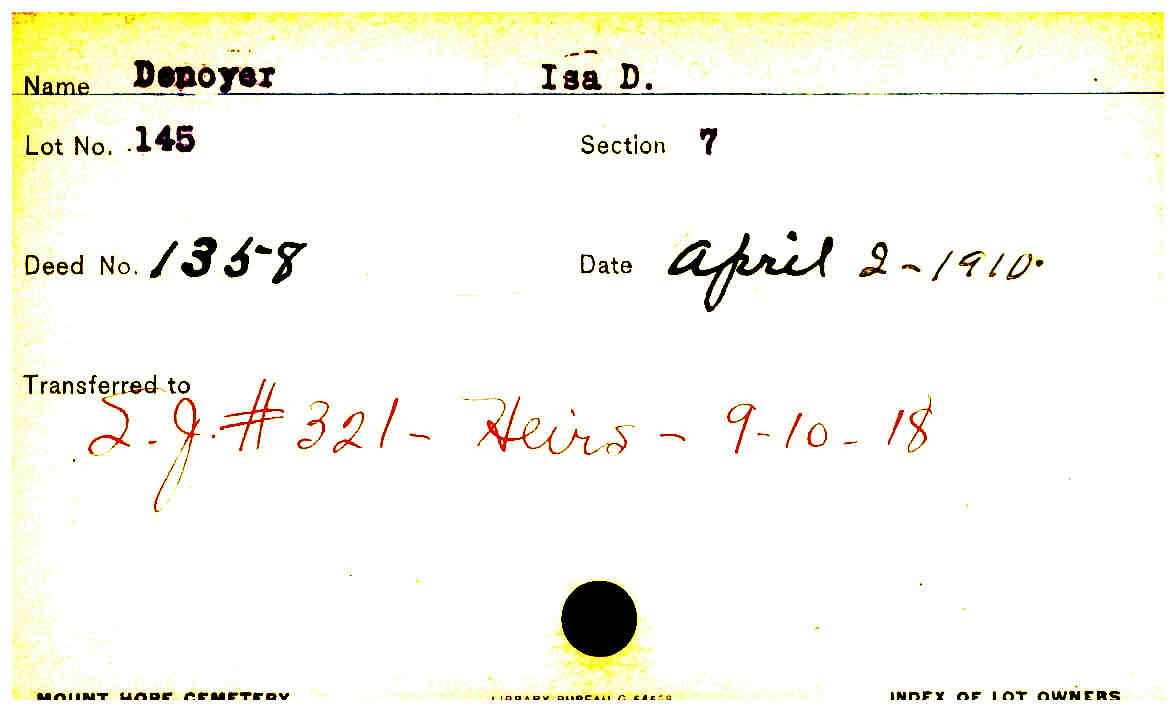 Name Denoyer Isa D.
Lot No. 145 Section 7
Deed No. 1358 Date April 2-1910.
Transferred to
#321- Heirs - 9-10-18
MOUNT HOPE CEMETERY LIBRARY BUREAU INDEX OF LOT OWNERS